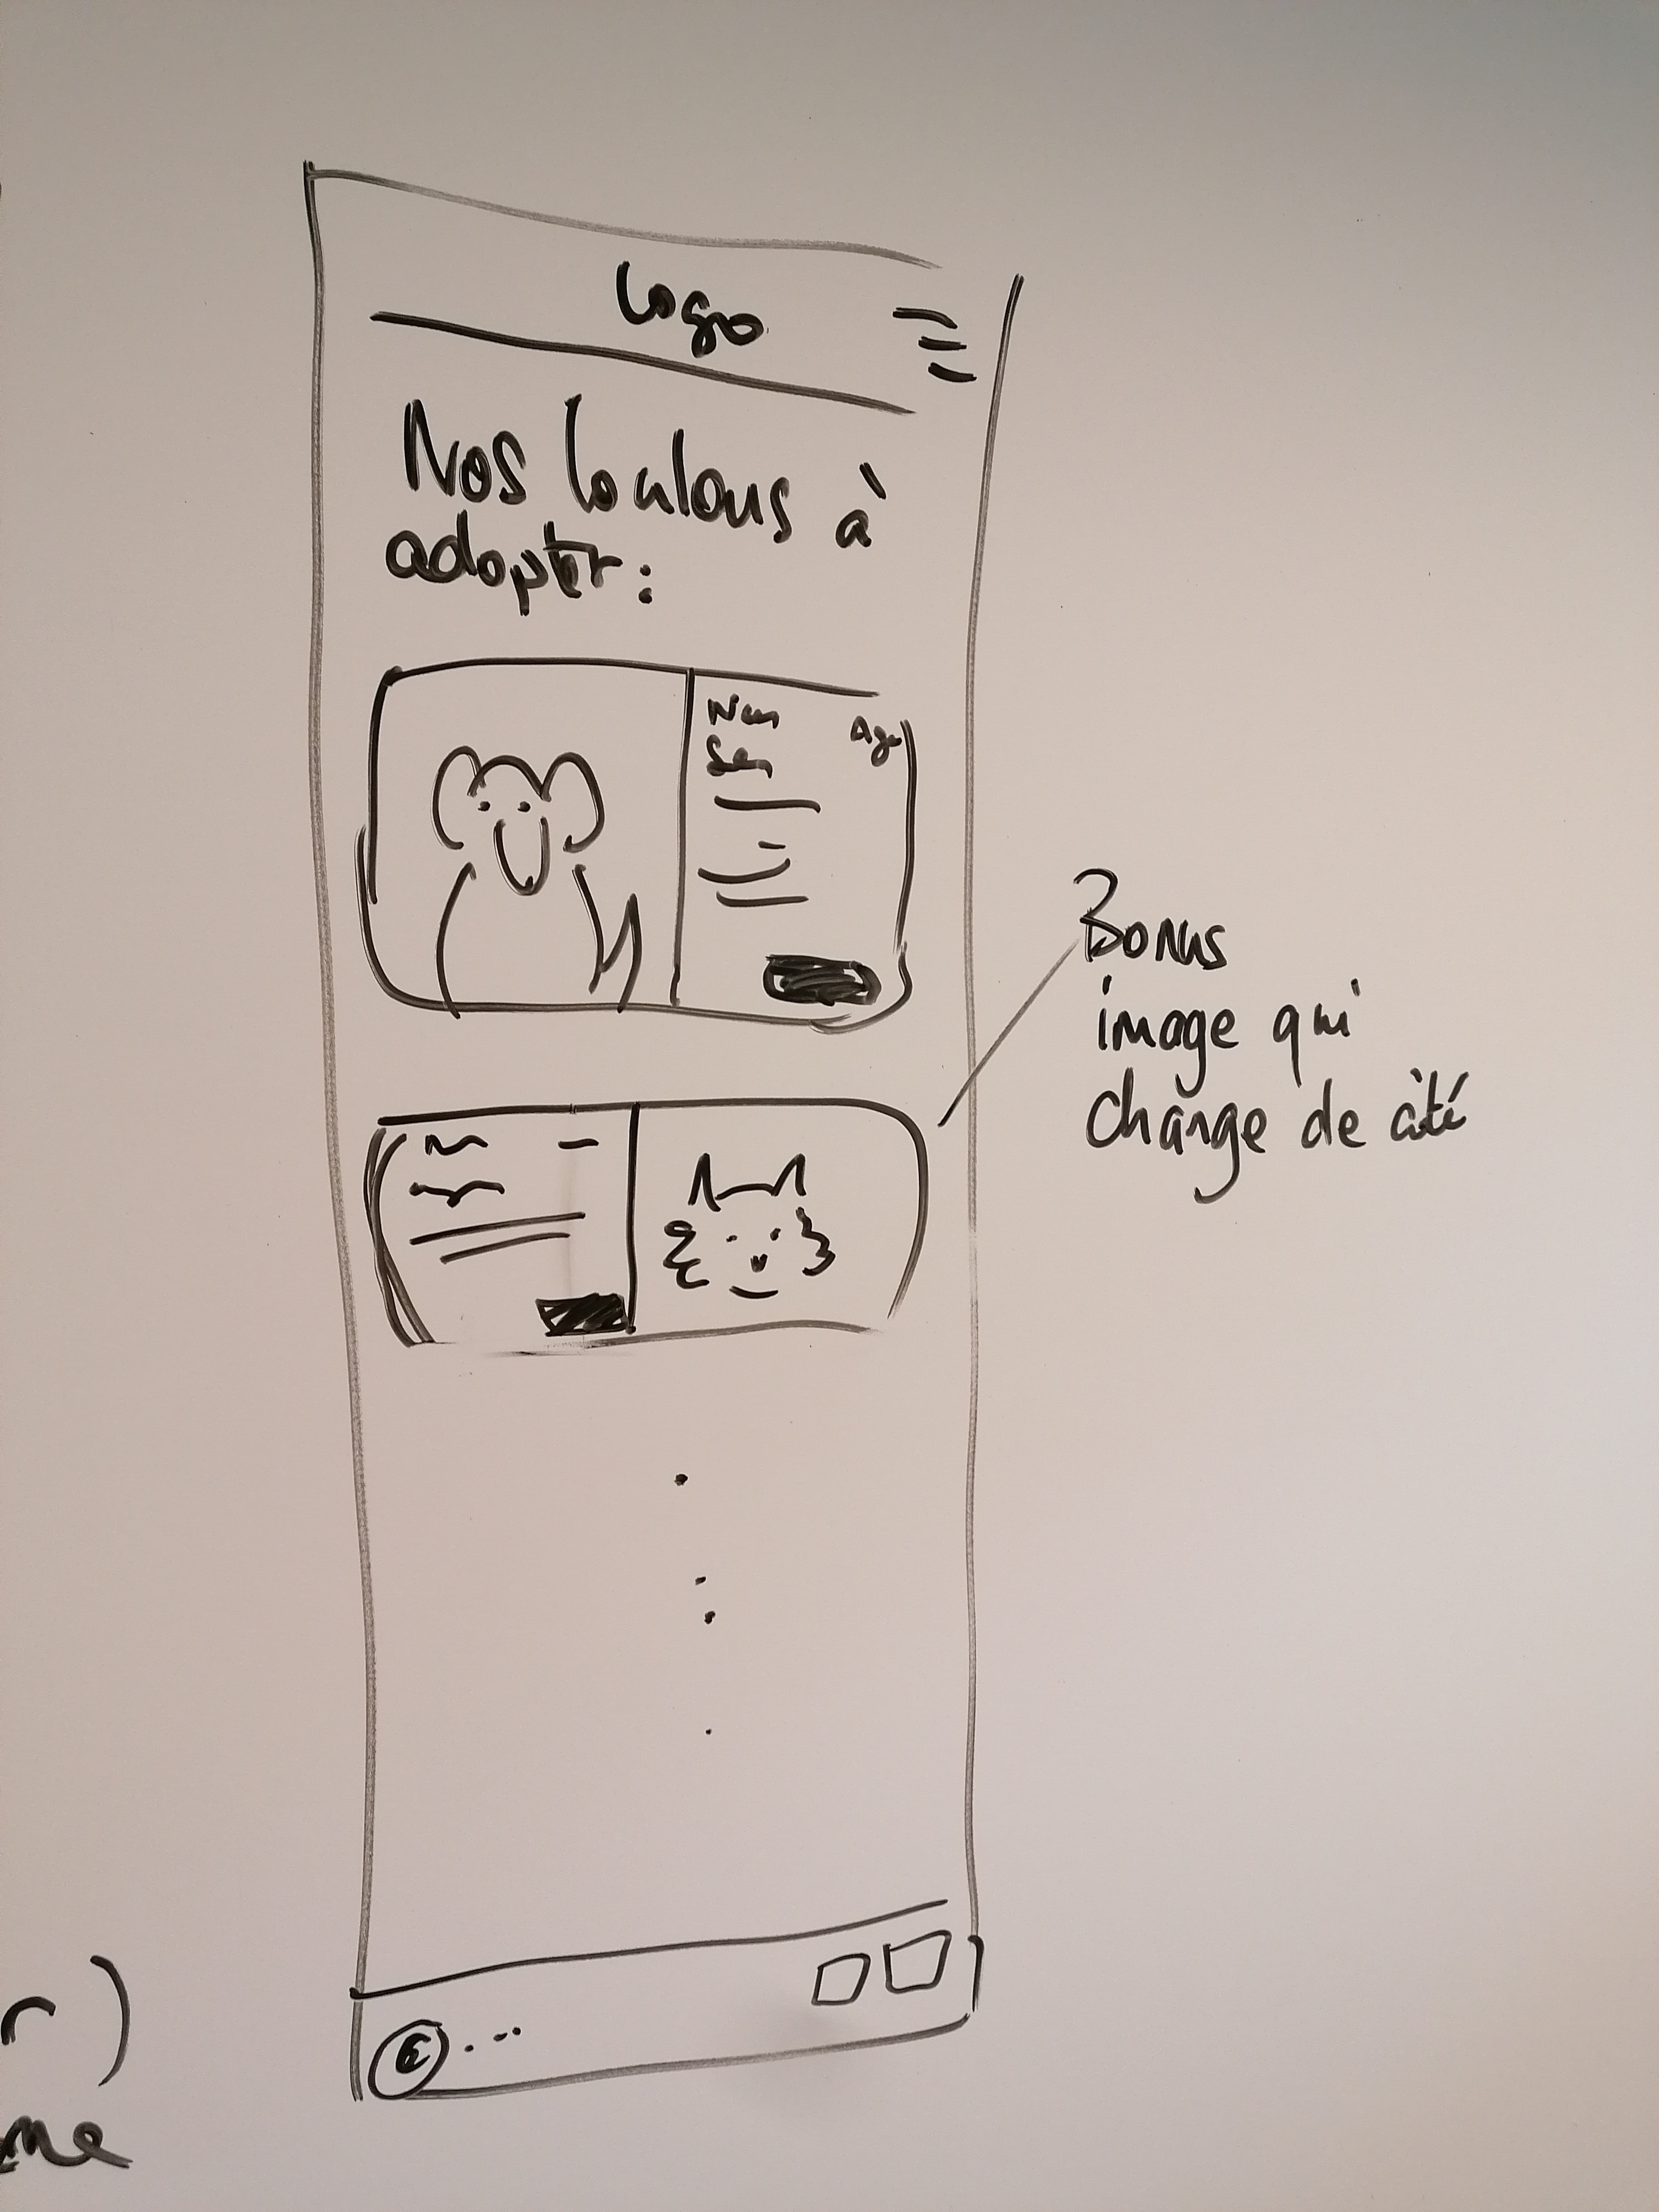 Logo
Nos loulous à
adopter :
Nom Age
Sexe
Bonus
image qui
change de côté
©...
r)
me